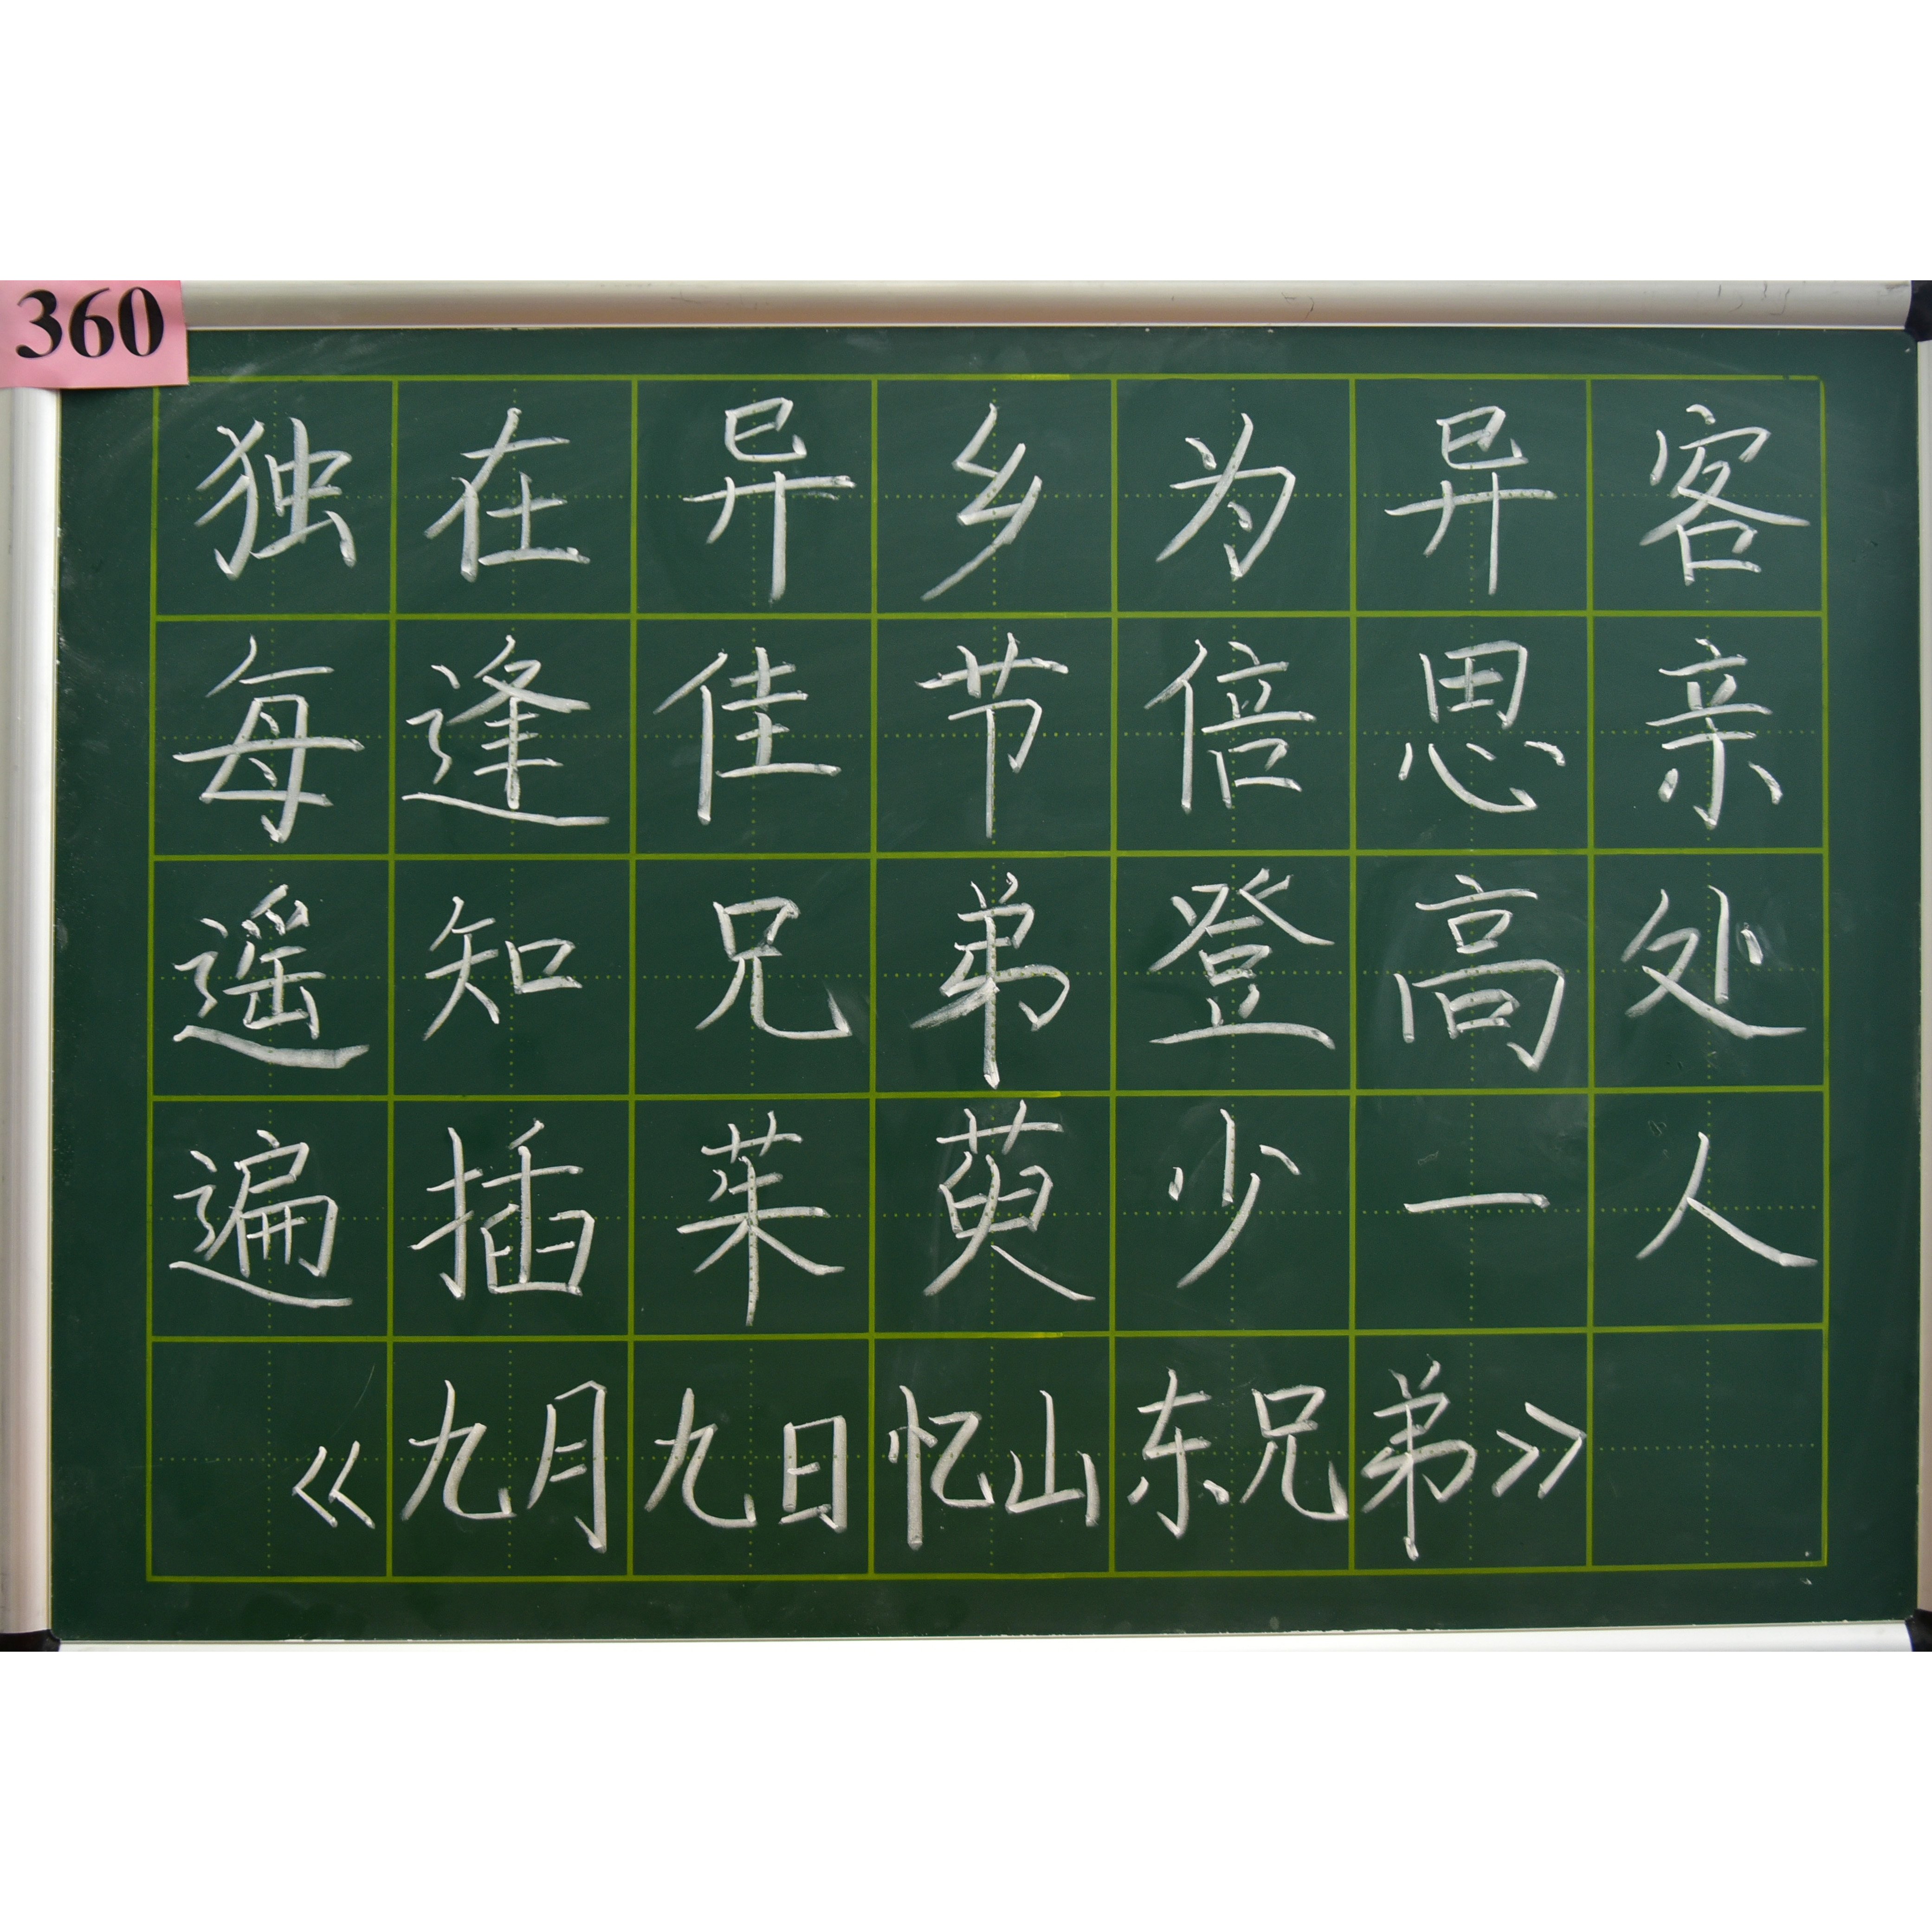 360
独在异乡为异客
每逢佳节倍思亲
遥知兄弟登高处
遍插茱萸少一人
《九月九日忆山东兄弟》